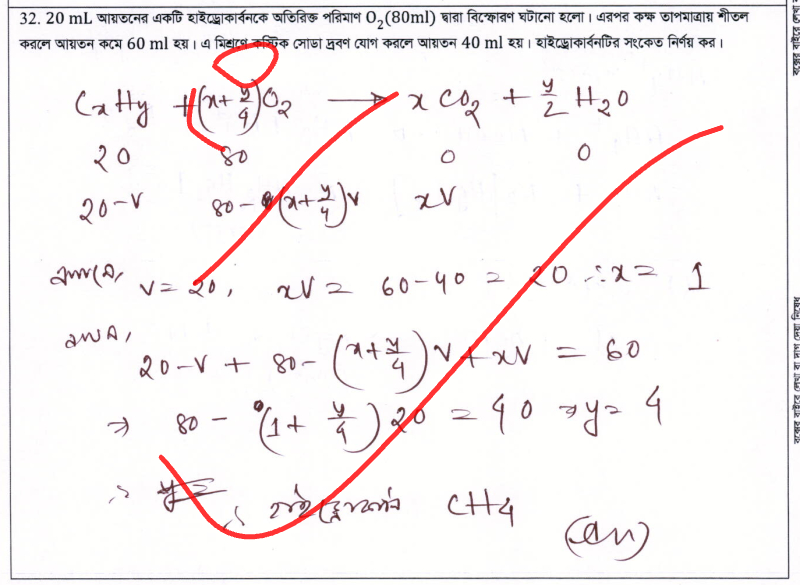 32. 20 mL আয়তনের একটি হাইড্রোকার্বনকে অতিরিক্ত পরিমাণ O₂(80ml) দ্বারা বিস্ফোরণ ঘটানো হলো। এরপর কক্ষ তাপমাত্রায় শীতল
করলে আয়তন কমে 60 ml হয়। এ মিশ্রণে কস্টিক সোডা দ্রবণ যোগ করলে আয়তন 40 ml হয়। হাইড্রোকার্বনটির সংকেত নির্ণয় কর।
CxHy + (x+y/4)O₂ → xCO₂ + y/2 H₂O
20 80 0 0
20-V 80-(x+y/4)V xV
V = 20, xV = 60-40 = 20 ∴x = 1
20-V + 80-(x+y/4)V + xV = 60
⇒ 80 - (1+y/4)20 = 40 ⇒ y = 4
∴ হাইড্রোকার্বন CH4
(Ans)